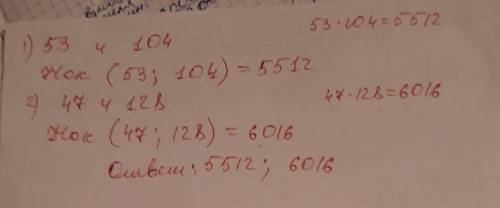 1) 53 и 104
53·104=5512
Нок (53; 104) = 5512
2) 47 и 128
47·128=6016
Нок (47; 128) = 6016
Ответ: 5512; 6016